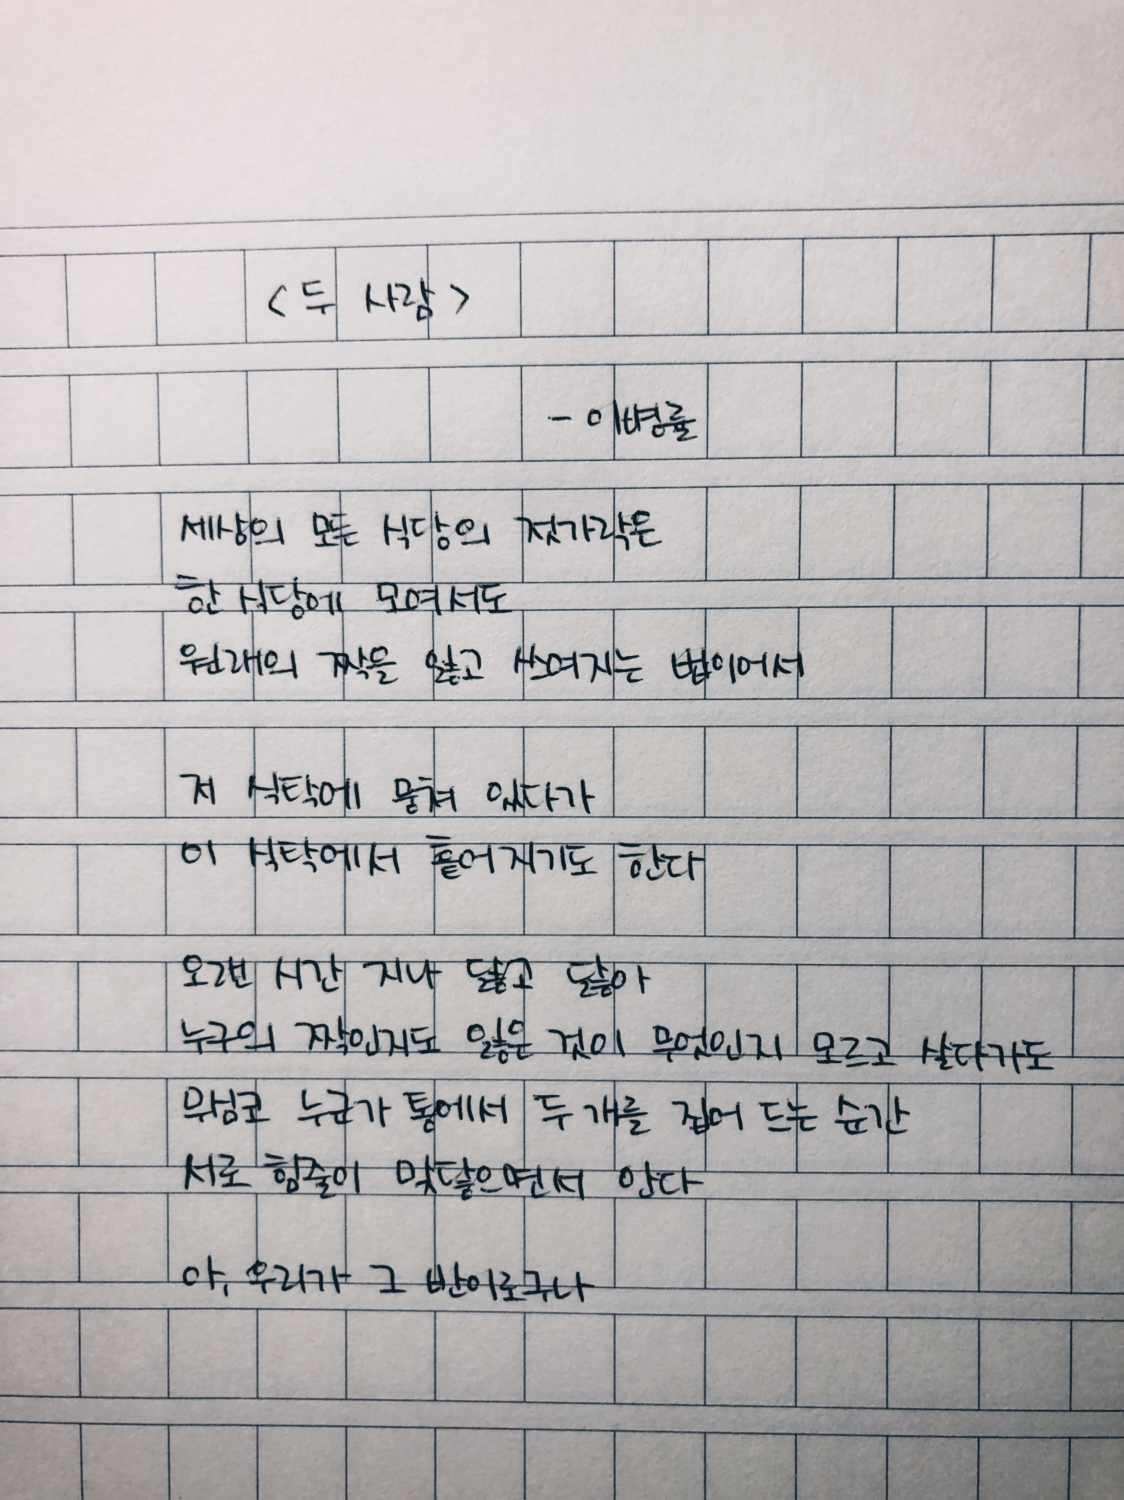 <두 사람>
- 이병률
세상의 모든 식당의 젓가락은
한 식당에 모여서도
원래의 짝을 잃고 쓰여지는 법이어서
저 식탁에 뭉쳐 있다가
이 식탁에서 흩어지기도 한다
오랜 시간 지나 닳고 닳아
누구의 짝인지도 잃은 것이 무엇인지 모르고 살다가도
무심코 누군가 통에서 두 개를 집어 드는 순간
서로 힘줄이 맞닿으면서 안다
아, 우리가 그 반이로구나